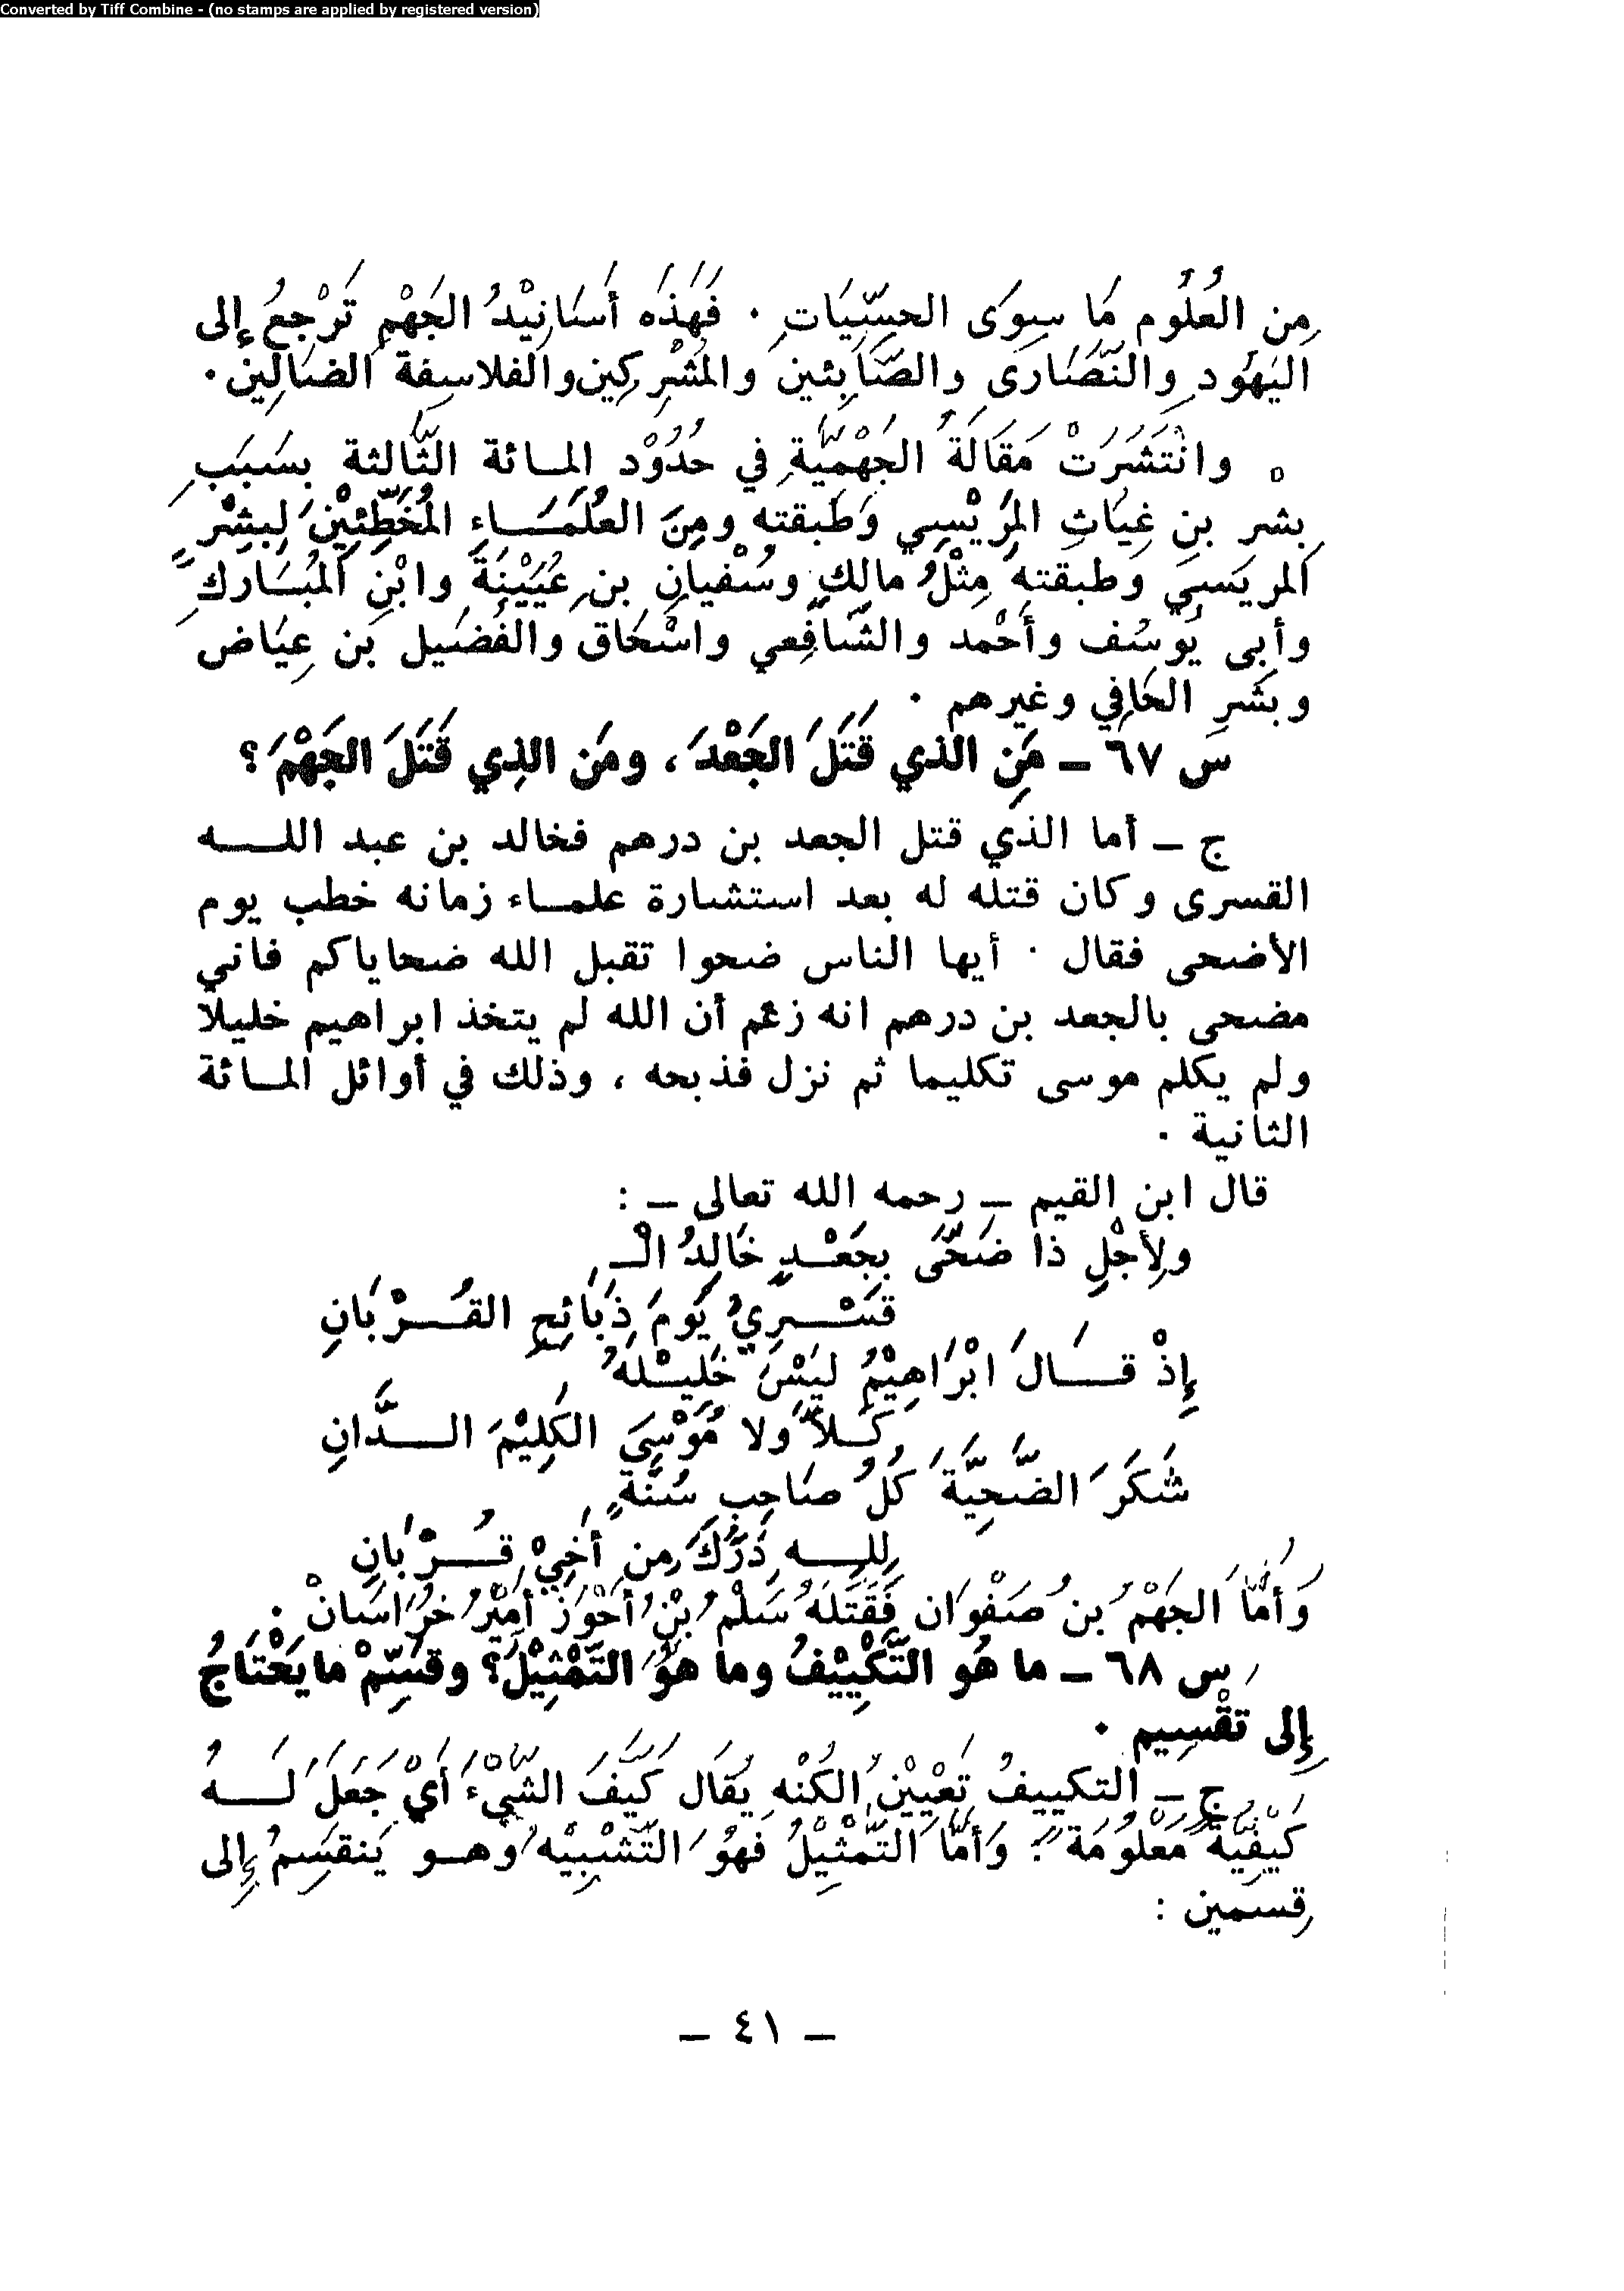 Converted by Tiff Combine - (no stamps are applied by registered version)
مِن العُلُوم مَا سِوَى الحِسِّيَّاتِ . فَهَذَه أَسَانِيْدُ الجَهْمِ تَرْجِعُ إلى
اليَهُودِ والنَّصَارَى والصَّابِئين والمُشْرِكِين والفلاسِفة الضالين .
ه وانْتَشَرَتْ مَقَالَةُ الجَهْمِيَّةِ في حُدُوْد المائة الثَّالثة بسَبَبِ
بِشر بن غِيَاثِ المِرِّيْسِي وَطَبقته ومِنَ العُلَمَاءِ المُخَطِّئِيْنَ لِبِشْرٍ
المريسي وطبقته مِثْلُ مالِكٍ وسُفْيانِ بن عُيَيْنَةَ وابْنِ المُبَارَكِ
وأبى يُوسُف وأَحْمد والشَّافِعي واسْحَاق والفُضَيل بن عِيَاض
وبَشر الحَافِي وغيرهم .
س ٦٧ – مَنِ الذي قَتَلَ الجَعْدَ ، ومَن الذِي قَتَلَ الجَهْمَ ؟
ج – أما الذي قتل الجعد بن درهم فخالد بن عبد الله
القسرى وكان قتله له بعد استشارة علماء زمانه خطب يوم
الأضحى فقال . أيها الناس ضحوا تقبل الله ضحاياكم فاني
مضحى بالجعد بن درهم انه زعم أن الله لم يتخذ ابراهيم خليلا
ولم يكلم موسى تكليما ثم نزل فذبحه ، وذلك في أوائل المائة
الثانية .
قال ابن القيم – رحمه الله تعالى – :
ولِأَجْلِ ذا ضَحَّى بِجَعْدٍ خَالِدُ الْـ
قَسْرِيُّ يَومَ ذَبَائِحِ القُرْبَانِ
إِذْ قَالَ ابْرَاهِيْمُ لَيْسَ خَلِيْلَهُ
كَلاَّ ولا مُوْسَى الكَلِيْمَ الدَّانِ
شَكَرَ الضَّحِيَّةَ كُلُّ صَاحِبِ سُنَّةٍ
لِلهِ دَرُّكَ مِن أَخِيْ قُرْبَانِ
وَأَمَّا الجَهْمُ بنُ صَفْوَان فَقَتَلَهُ سَلْمُ بْنُ أَحْوَزَ أَمِيْرُ خُرَاسَانْ .
س ٦٨ – ما هُو التَّكْيِيْفُ وما هُوَ التَّمْثِيْلُ ؟ وقَسِّمْ ما يَحْتَاجُ
إِلى تَقْسِيم .
ج – التكييفُ تَعْيِيْنُ الكُنْهِ يُقَال كَيَّفَ الشَّيْءَ أَيْ جَعَلَ لَهُ
كَيْفِيَّةً مَعْلُومَةً . وَأَمَّا التَّمْثِيْلُ فَهُوَ التَّشْبِيْه وهو يَنقَسِمُ إِلى
قِسمَين :
– ٤١ –